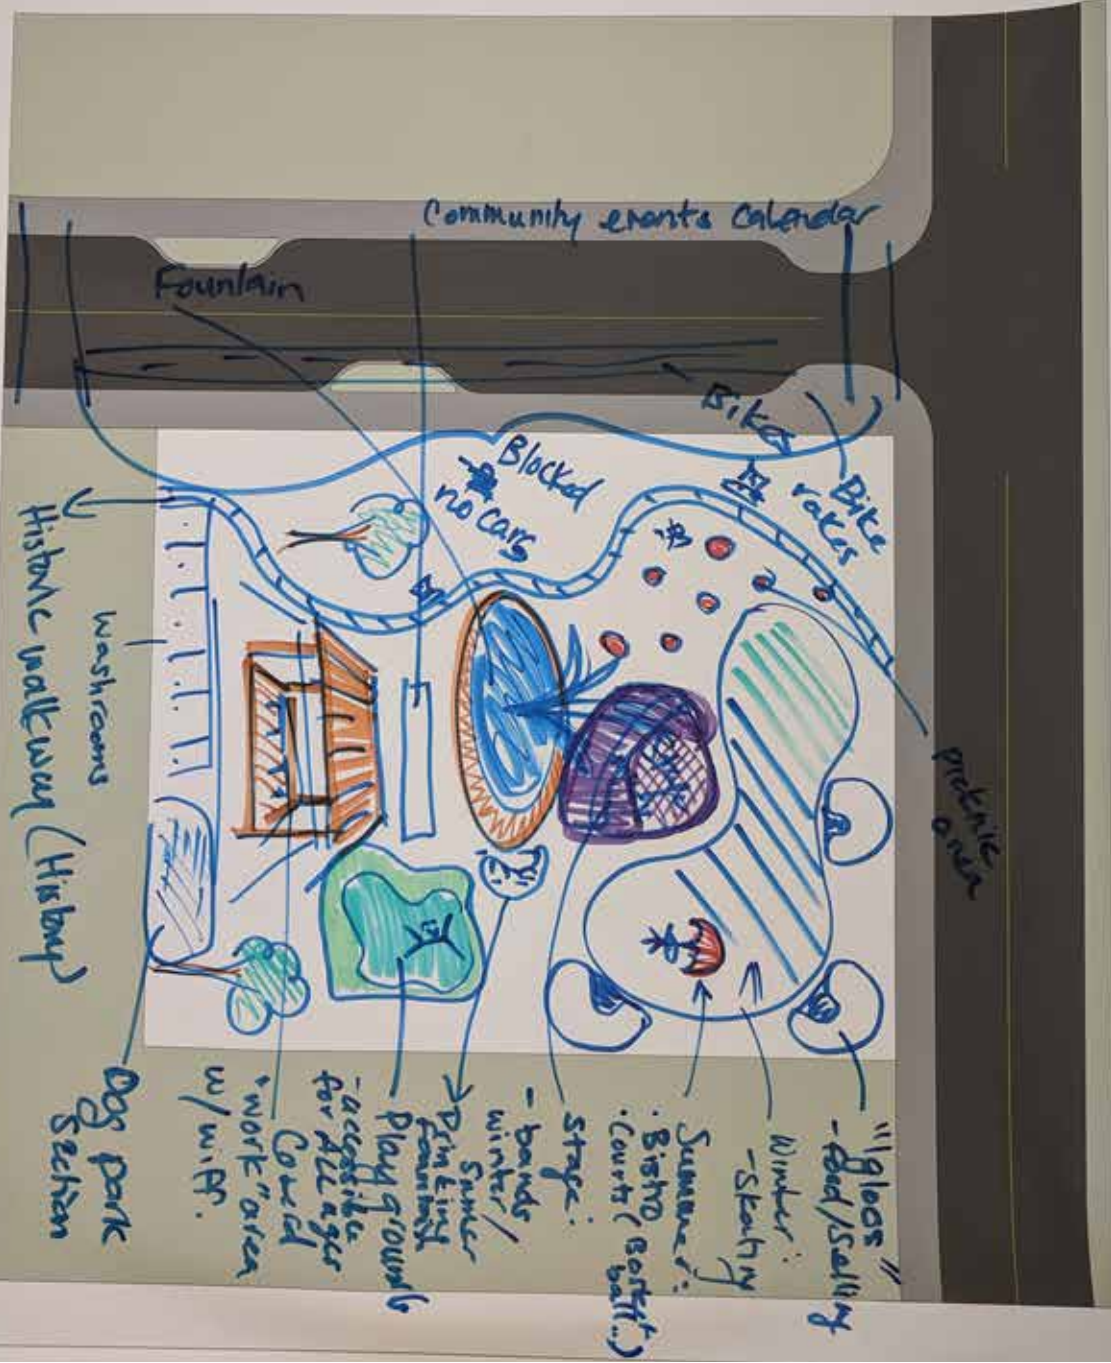 Community events Calendar
Fountain
Bikes
Bike
rakes
Blocked
no cars
picknic
area
Historic walkway (History)
washrooms
"Igloos"
- food/selling
Winter:
- Skating
Summer:
· Bistro
· Courts (Basket
ball..)
Stage:
- bands
winter/
Summer
Drinking
fountain
Playground
- accessible
for ALL ages
"work" area
w/ wiff.
Dog park
Section